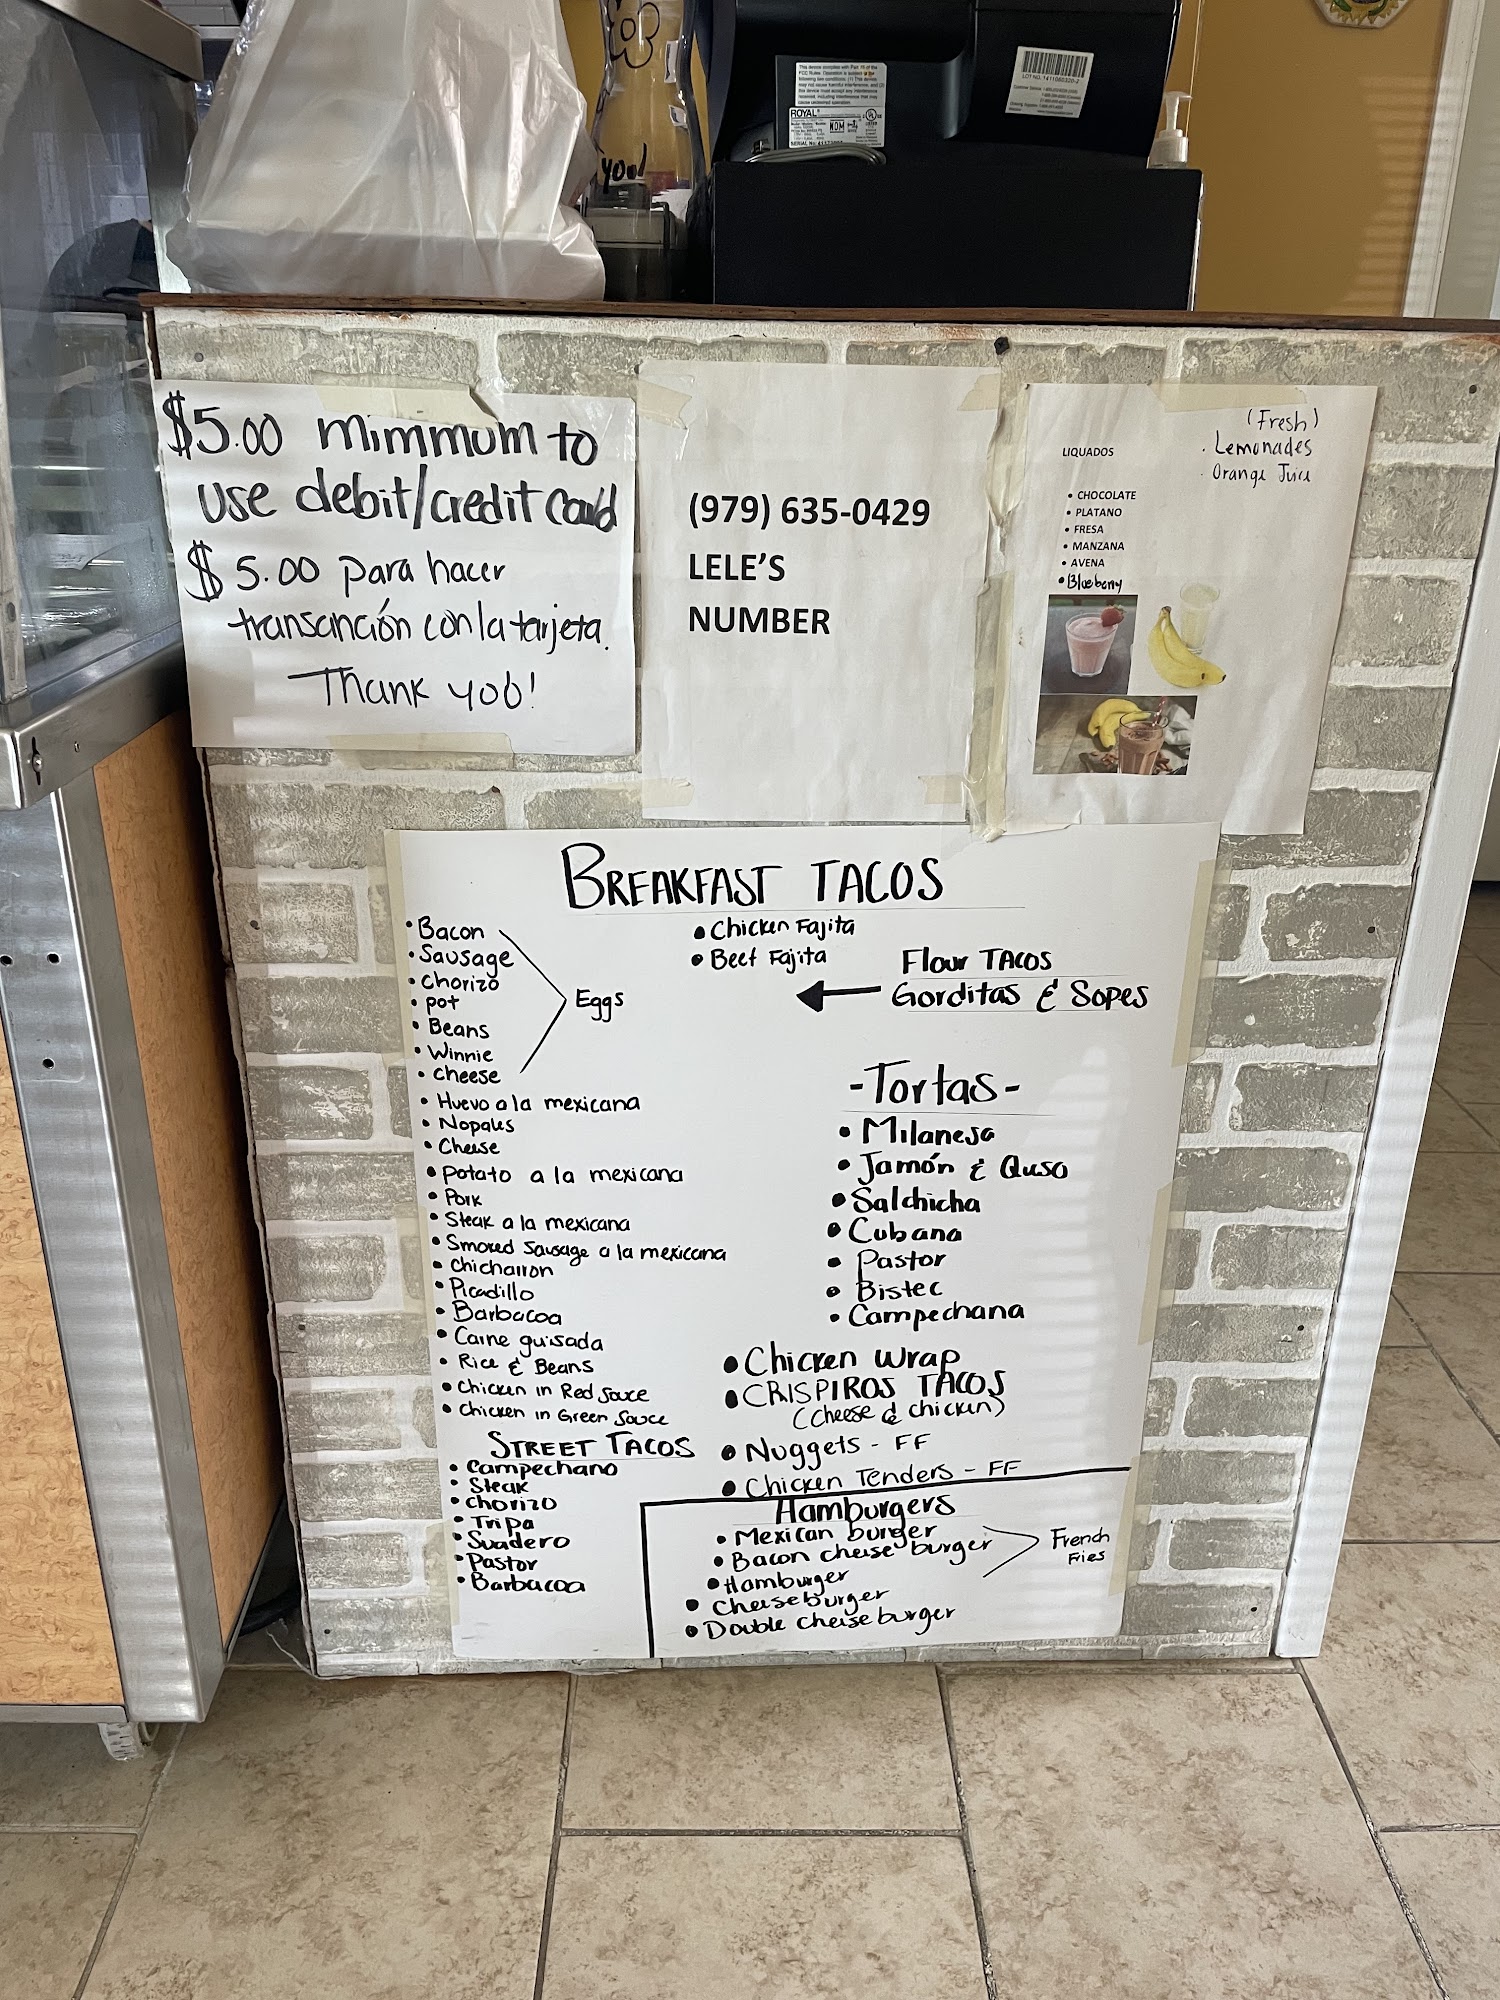 you!
This device complies with Part 15 of the
FCC Rules. Operation is subject to the
ROYAL
LOT NO. 1411060320-2
$5.00 minimum to
use debit/credit card
$5.00 para hacer
transanción con la tarjeta.
Thank you!
(979) 635-0429
LELE'S
NUMBER
LIQUADOS
• CHOCOLATE
• PLATANO
• FRESA
• MANZANA
• AVENA
• Blueberry
(Fresh)
. Lemonades
. Orange Juice
BREAKFAST TACOS
• Bacon
• Sausage
• Chorizo
• pot
• Beans
• Winnie
• cheese
Eggs
• Huevo a la mexicana
• Nopales
• Cheese
• Potato a la mexicana
• Pork
• Steak a la mexicana
• Smoked Sausage a la mexicana
• Chicharron
• Picadillo
• Barbacoa
• Carne guisada
• Rice & Beans
• Chicken in Red Sauce
• Chicken in Green Sauce
STREET TACOS
• Campechano
• Steak
• Chorizo
• Tripa
• Suadero
• Pastor
• Barbacoa
• Chicken Fajita
• Beef Fajita
Flour TACOS
Gorditas & Sopes
-Tortas-
• Milanesa
• Jamón & Queso
• Salchicha
• Cubana
• Pastor
• Bistec
• Campechana
• Chicken Wrap
• CRISPIROS TACOS
(cheese & chicken)
• Nuggets - FF
• Chicken Tenders - FF
Hamburgers
• Mexican burger
• Bacon cheese burger
• Hamburger
• Cheeseburger
• Double cheese burger
French
Fries